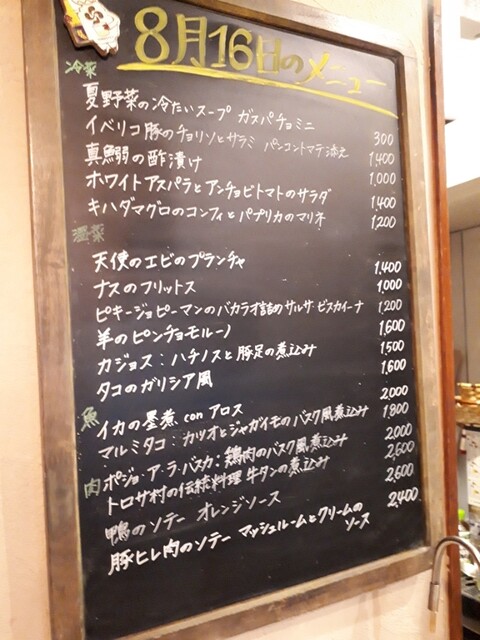 8月16日のメニュー
冷菜
夏野菜の冷たいスープ ガスパチョミニ 300
イベリコ豚のチョリソとサラミ パンコントマテ添え 1,400
真鰯の酢漬け 1,000
ホワイトアスパラとアンチョビトマトのサラダ 1,400
キハダマグロのコンフィとパプリカのマリネ 1,200
温菜
天使のエビのプランチャ 1,400
ナスのフリットス 1,000
ピキージョピーマンのバカラオ詰め サルサ・ビスカイーナ 1,200
羊のピンチョモルーノ 1,600
カジョス:ハチノスと豚足の煮込み 1,500
タコのガリシア風 1,600
魚
イカの墨煮 con アロス 2,000
マルミタコ:カツオとジャガイモのバスク風煮込み 1,800
肉
ポジョ・ア・ラ・バスカ:鶏肉のバスク風煮込み 2,000
トロサ村の伝統料理 牛タンの煮込み 2,600
鴨のソテー オレンジソース 2,600
豚ヒレ肉のソテー マッシュルームとクリームの 2,400
ソース